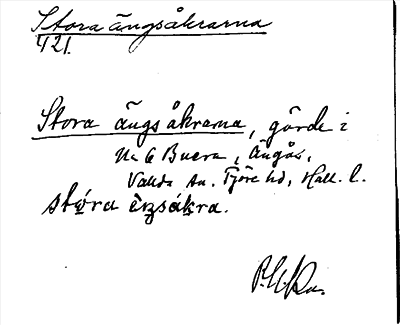 Stora ängsåkrarna
421.
Stora ängsåkrarna, gärde i
No 6 Buera, Ängås,
Vallda sn. Fjäre hd, Hall. l.
stó̤ra èŋsákra.